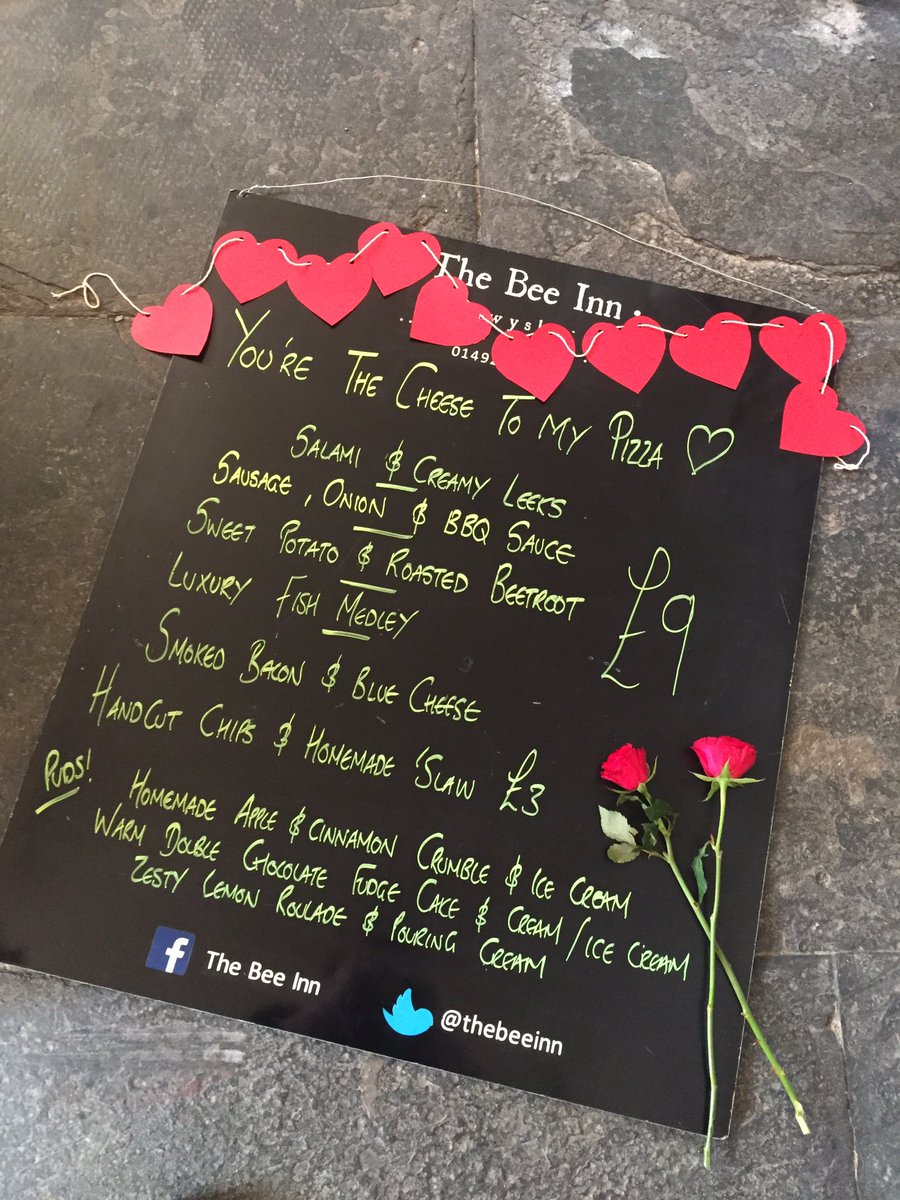 The Bee Inn.
0149
YOU'RE THE CHEESE TO MY PIZZA
SALAMI & CREAMY LEEKS
SAUSAGE, ONION & BBQ SAUCE
SWEET POTATO & ROASTED BEETROOT
LUXURY FISH MEDLEY
£9
SMOKED BACON & BLUE CHEESE
HANDCUT CHIPS & HOMEMADE 'SLAW £3
PUDS!
HOMEMADE APPLE & CINNAMON CRUMBLE & ICE CREAM
WARM DOUBLE CHOCOLATE FUDGE CAKE & CREAM/ICE CREAM
ZESTY LEMON ROULADE & POURING CREAM
f The Bee Inn
@thebeeinn